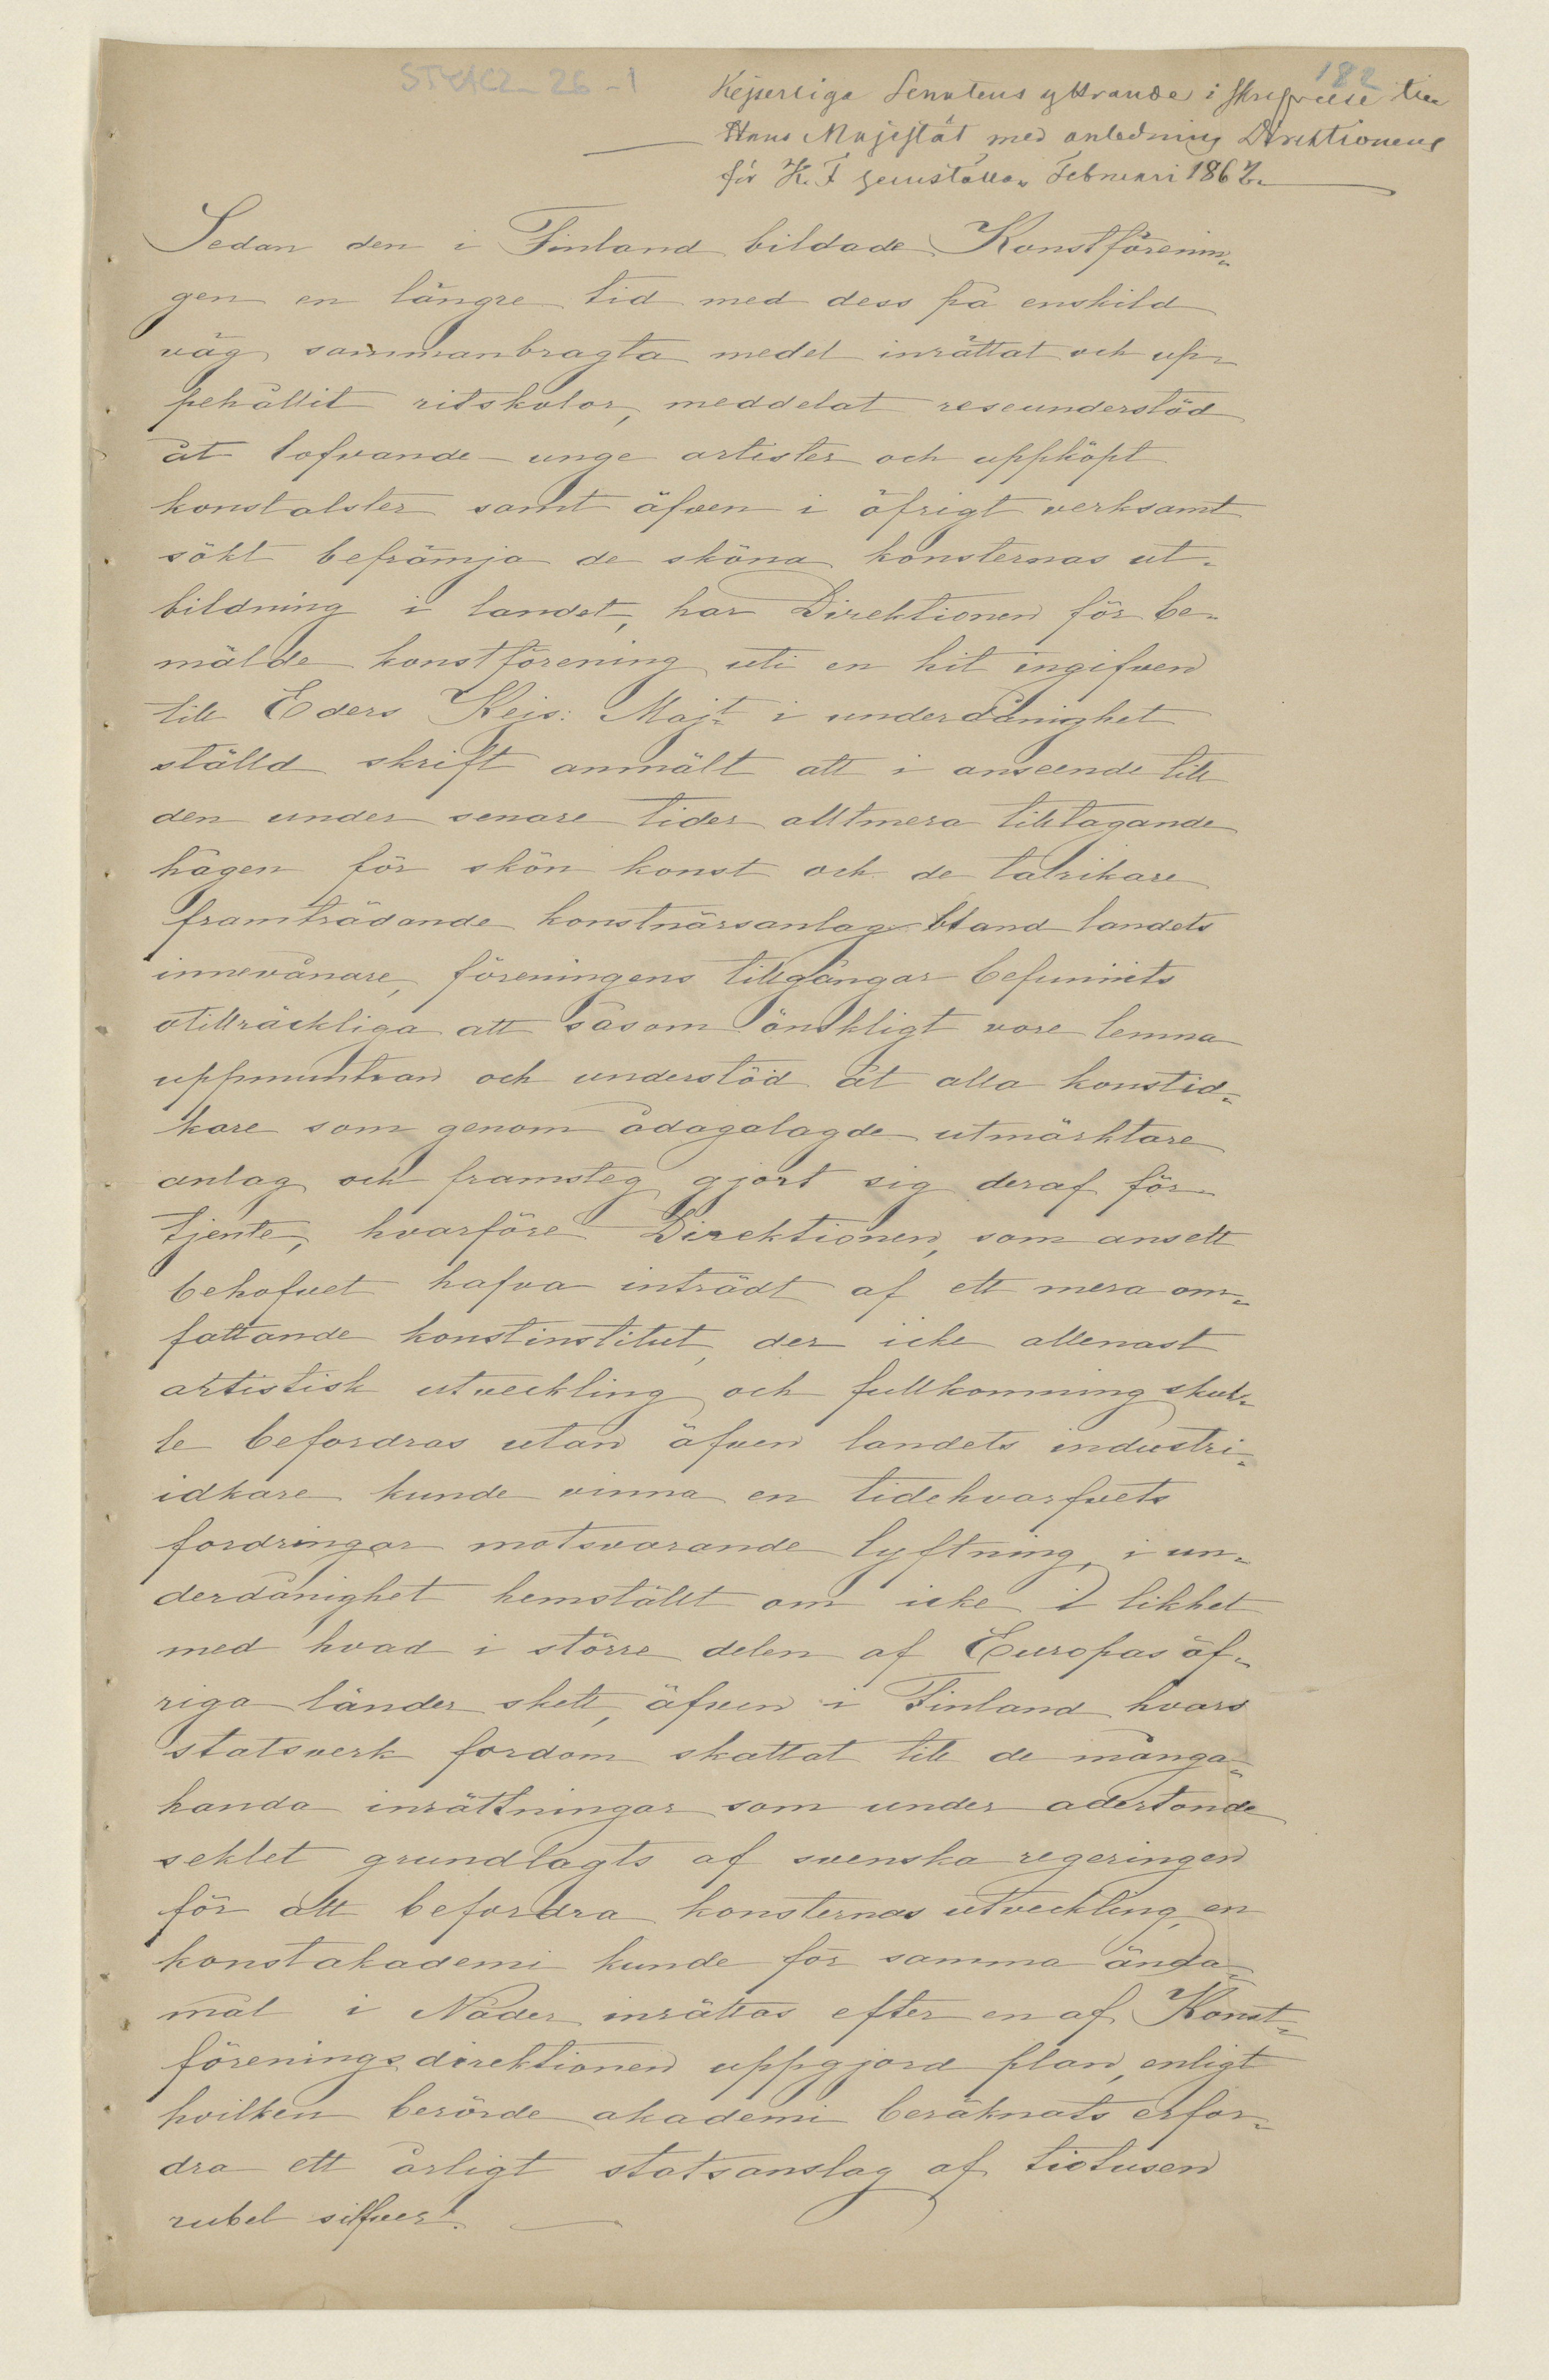 182
Kejserliga Senatens yttrande i skrifvelse till
Hans Majestät med anledning Direktionens
för K. F. hemställan Februari 1862.
Sedan den i Finland bildade Konstförenin-
gen en längre tid med dess på enskild
väg sammanbragta medel inrättat och up-
pehållit ritskolor, meddelat reseunderstöd
åt lofvande unge artister och uppköpt
konstalster samt äfven i öfrigt verksamt
sökt befrämja de sköna konsternas ut-
bildning i landet, har Direktionen för be-
mälde konstförening uti en hit ingifven
till Eders Kejs: Majt i underdånighet
ställd skrift anmält att i anseende till
den under senare tider alltmera tilltagande
hågen för skön konst och de talrikare
framträdande konstnärsanlag bland landets
innevånare, föreningens tillgångar befunnits
otillräckliga att såsom önskligt vore lemna
uppmuntran och understöd åt alla konstid-
kare som genom ådagalagde utmärktare
anlag och framsteg gjort sig deraf för-
tjente, hvarföre Direktionen, som ansett
behofvet hafva inträdt af ett mera om-
fattande konstinstitut, der icke allenast
artistisk utveckling och fullkomning skul-
le befordras utan äfven landets industri-
idkare kunde vinna en tidehvarfvets
fordringar motsvarande lyftning, i un-
derdånighet hemställt om icke i likhet
med hvad i större delen af Europas öf-
riga länder skett, äfven i Finland hvars
statsverk fordom skattat till de många-
handa inrättningar som under adertonde
seklet grundlagts af svenska regeringen
för att befordra konsternas utveckling, en
konstakademi kunde för samma ända-
mål i Nåder inrättas efter en af Konst-
föreningsdirektionen uppgjord plan, enligt
hvilken berörde akademi beräknats erfor-
dra ett årligt statsanslag af tiotusen
rubel silfver.